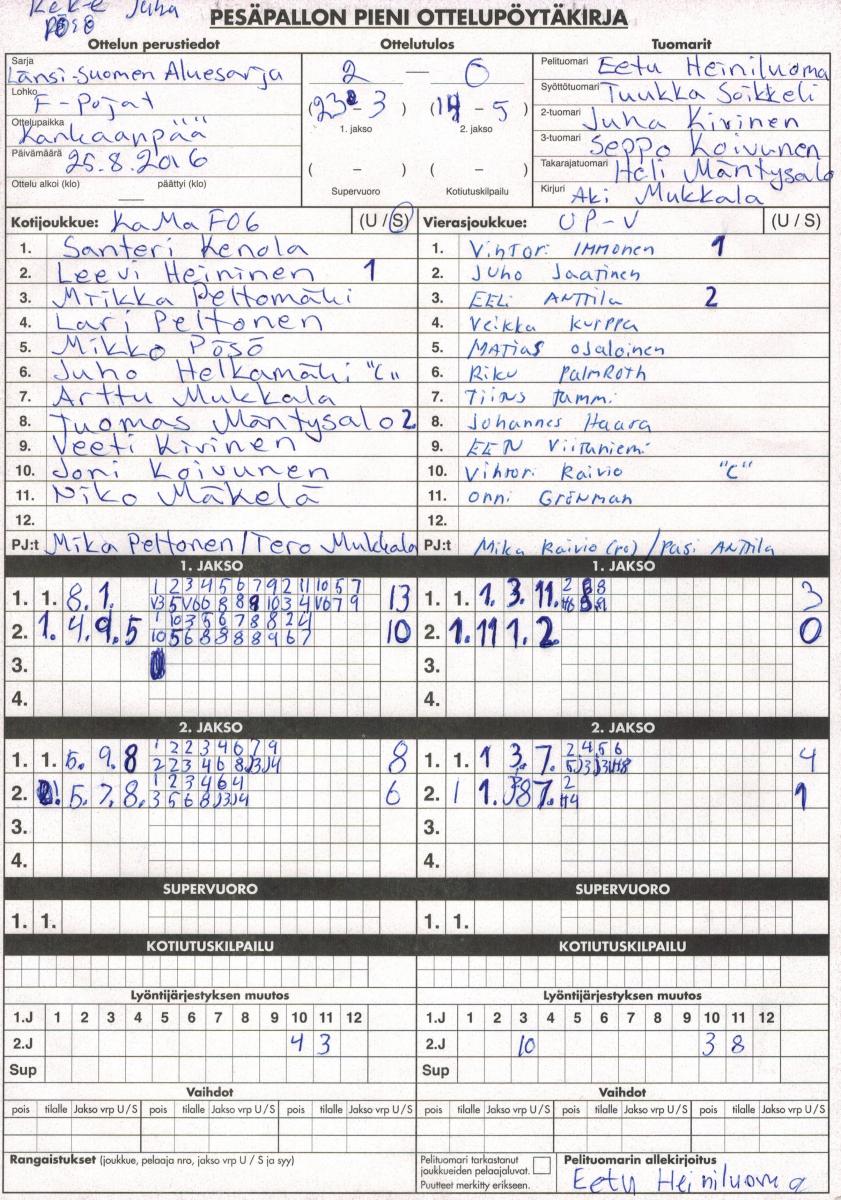 Keke Juha
PESÄPALLON PIENI OTTELUPÖYTÄKIRJA
Pösö
Ottelun perustiedot
Ottelutulos
Tuomarit
Sarja Länsi-Suomen Aluesarja
Lohko F-Pojat
Ottelupaikka Kankaanpää
Päivämäärä 25.8.2016
Ottelu alkoi (klo) päättyi (klo)
2 — 0
(23 – 3) (14 – 5)
1. jakso 2. jakso
( – ) ( – )
Supervuoro Kotiutuskilpailu
Pelituomari Eetu Heiniluoma
Syöttötuomari Tuukka Soikkeli
2-tuomari Juha Kivinen
3-tuomari Seppo Koivunen
Takarajatuomari Heli Mäntysalo
Kirjuri Aki Mukkala
Kotijoukkue: KaMa F06 (U / S)
1. Santeri Kenola
2. Leevi Heininen 1
3. Miikka Peltomäki
4. Lari Peltonen
5. Mikko Pösö
6. Juho Helkamäki "C"
7. Arttu Mukkala
8. Tuomas Mäntysalo 2
9. Veeti Kivinen
10. Joni Koivunen
11. Niko Mäkelä
12.
PJ:t Mika Peltonen/Tero Mukkala
Vierasjoukkue: UP-V (U / S)
1. Vihtori IMMONEN 1
2. Juho Jaatinen
3. EELi ANTTila 2
4. Veikka Kurppa
5. MATias OJaloinen
6. Riku PalmRoth
7. Tiins Tammi
8. Johannes Haara
9. EEN Viitaniemi
10. Vihtori Raivio "C"
11. Onni GRÖNMAN
12.
PJ:t Mika Raivio (po) / Pasi ANTTila
1. JAKSO
1. 1. 8. 1.
1 2 3 4 5 6 7 9 2 11 10 5 7
V3 5 V6 6 8 8 8 8 10 3 4 V6 7 9
13
2. 1. 4. 9. 5
1 10 3 5 6 7 8 8 2 4
10 5 6 8 8 8 8 9 6 7
10
3.
4.
1. JAKSO
1. 1. 1. 3. 11.
3
2. 1. 11 1. 2.
0
3.
4.
2. JAKSO
1. 1. 5. 9. 8
1 2 2 3 4 6 7 9
2 2 3 4 6 8 J3 J4
8
2. 5. 7. 8.
1 2 3 4 6 4
3 5 6 8 J3 J4
6
3.
4.
2. JAKSO
1. 1. 1 3. 7.
2 4 5 6
4
2. 1 1.
2
H4
1
3.
4.
SUPERVUORO
1. 1.
SUPERVUORO
1. 1.
KOTIUTUSKILPAILU
KOTIUTUSKILPAILU
Lyöntijärjestyksen muutos
1.J 1 2 3 4 5 6 7 8 9 10 11 12
2.J 4 3
Sup
Lyöntijärjestyksen muutos
1.J 1 2 3 4 5 6 7 8 9 10 11 12
2.J 10 3 8
Sup
Vaihdot
pois tilalle Jakso vrp U/S pois tilalle Jakso vrp U/S pois tilalle Jakso vrp U/S
Vaihdot
pois tilalle Jakso vrp U/S pois tilalle Jakso vrp U/S pois tilalle Jakso vrp U/S
Rangaistukset (joukkue, pelaaja nro, jakso vrp U / S ja syy)
Pelituomari tarkastanut
joukkueiden pelaajaluvat.
Puutteet merkitty erikseen.
Pelituomarin allekirjoitus
Eetu Heiniluoma